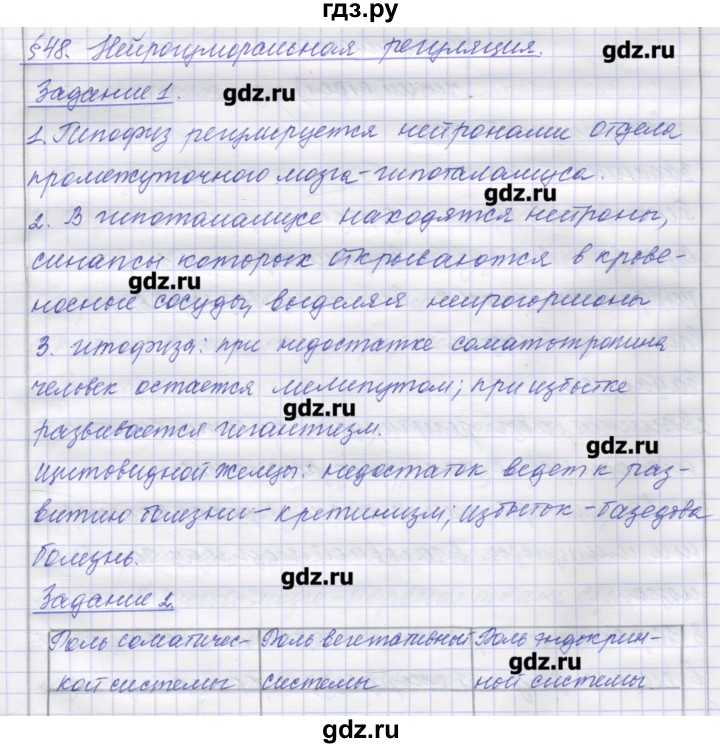 гдз.ру
§48. Нейрогуморальная регуляция.
gdz.ru
Задание 1.
gdz.ru
1. Гипофиз регулируется нейронами отдела
промежуточного мозга - гипоталамуса.
gdz.ru
2. В гипоталамусе находятся нейроны,
синапсы которых открываются в крове-
gdz.ru
носные сосуды, выделяя нейрогормоны
3. гипофиза: при недостатке соматотропина
человек остается лилипутом; при избытке
gdz.ru
развивается гигантизм.
gdz.ru
Щитовидной железы: недостаток ведет к раз-
витию болезни - кретинизм; избыток - базедова
болезнь.
gdz.ru
Задание 2.
Роль соматичес- Роль вегетативный Роль эндокрин-
gdz.ru
кой системы системы ной системы.
gdz.ru